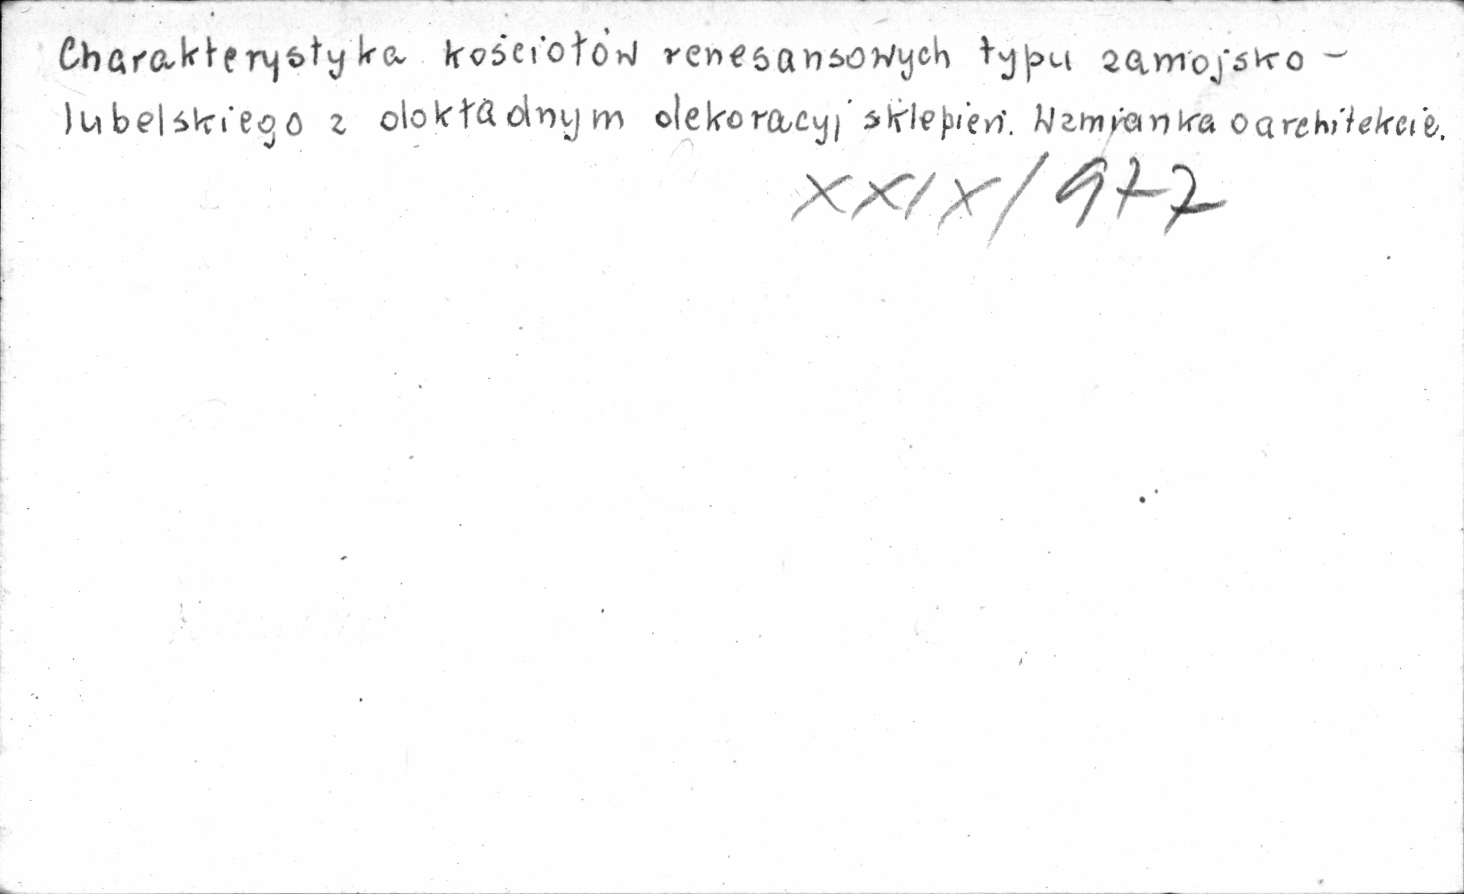 Charakterystyka kościołów renesansowych typu zamojsko –
lubelskiego z dokładnym dekoracyj sklepień. Wzmianka o architekcie.
XXIX/977